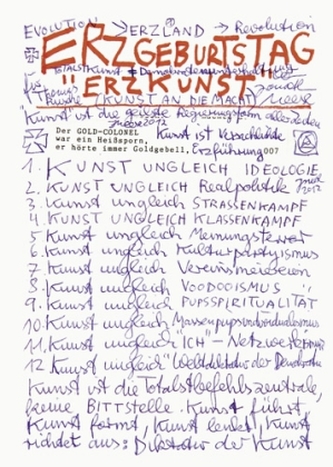 EVOLUTION → ERZLAND → Revolution
ERZGEBURTSTAG
TOTALSTKUNST
ERZKUNST
für Thomas
(KUNST AN DIE MACHT)
Meese
"Kunst ist die geilste Regierungsform aller Zeiten
Meese 2012
Der GOLD-COLONEL
war ein Heißsporn,
er hörte immer Goldgebell, Erzführung007
Kunst ist Verschlüsselte
1. KUNST UNGLEICH IDEOLOGIE,
2. KUNST UNGLEICH Realpolitik
2012
3. Kunst ungleich STRASSENKAMPF
4 KUNST UNGLEICH KLASSENKAMPF
5 Kunst ungleich Meinungsterror
6. Kunst ungleich Kulturpartyismus
7 Kunst ungleich Vereinsmeiereien
8 Kunst ungleich VOODOOISMUS
9. Kunst ungleich PUPSSPIRITUALITÄT
10. Kunst ungleich Massenpupsindividualismus
11. Kunst ungleich "ICH"-Netzwerk
12 Kunst ungleich "Weltdiktatur der Demokratie
Kunst ist die Totalstbefehlszentrale,
keine BITTSTELLE. Kunst führt,
Kunst formt, Kunst leitet, Kunst
richtet aus: Diktatur der Kunst